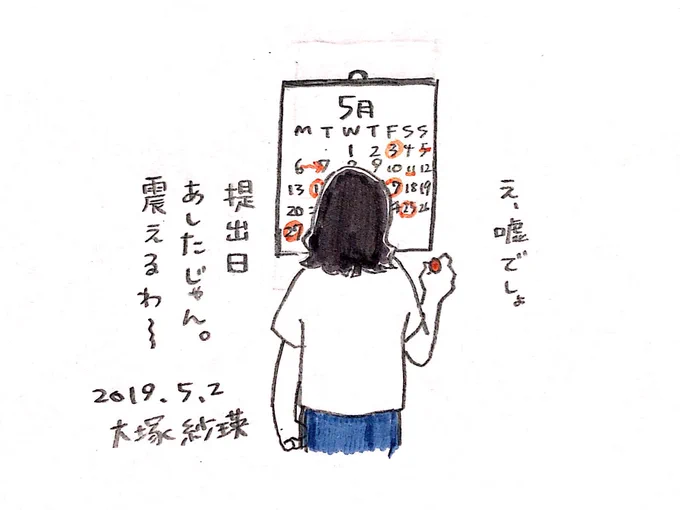 え、嘘でしょ
5月
M T W T F S S
1 2 3 4 5
6 7 9 10 11 12
13 18 19
20 25 26
27
提出日
あしたじゃん。
震えるわ〜
2019.5.2
大塚紗瑛